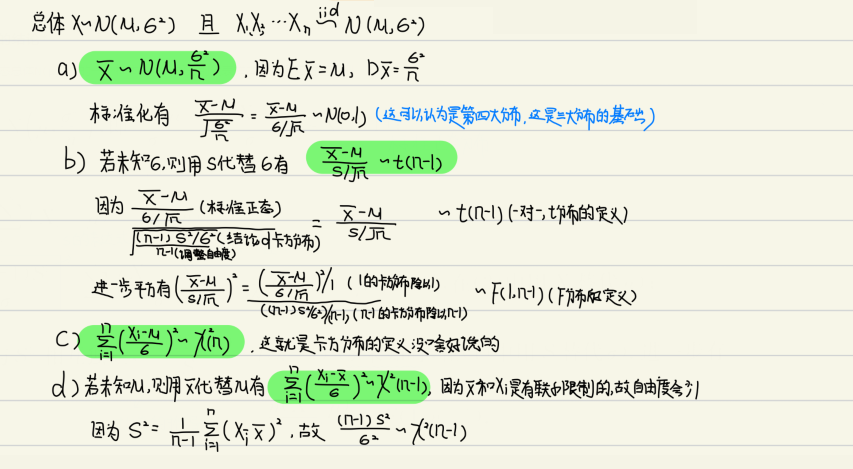 总体 X~N(μ,σ²) 且 X₁X₂…Xₙ iid~ N(μ,σ²)
a) X̄ ~ N(μ, σ²/n), 因为 EX̄=μ, DX̄=σ²/n
标准化有 (X̄-μ)/√(σ²/n) = (X̄-μ)/(σ/√n) ~N(0,1) (这可以认为是第四大分布,这是三大分布的基础)
b) 若未知σ,则用S代替σ有 (X̄-μ)/(S/√n) ~t(n-1)
因为 [(X̄-μ)/(σ/√n) (标准正态)]/√[(n-1)S²/σ²(结论d卡方分布)/n-1(调整自由度)] = (X̄-μ)/(S/√n) ~t(n-1) (一对一,t分布的定义)
进一步平方有 ((X̄-μ)/(S/√n))² = [((X̄-μ)/(σ/√n))²/1 (1的卡方分布除以1)]/[((n-1)S²/σ²)/(n-1) (n-1的卡方分布除以n-1)] ~F(1,n-1) (F分布的定义)
c) Σᵢ₌₁ⁿ((Xᵢ-μ)/σ)² ~ χ²(n), 这就是卡方分布的定义没啥好说的
d) 若未知μ,则用X̄代替μ有 Σᵢ₌₁ⁿ((Xᵢ-X̄)/σ)² ~ χ²(n-1), 因为X̄和Xᵢ是有联和限制的,故自由度会少1
因为 S² = 1/(n-1) Σᵢ₌₁ⁿ(Xᵢ-X̄)², 故 (n-1)S²/σ² ~ χ²(n-1)